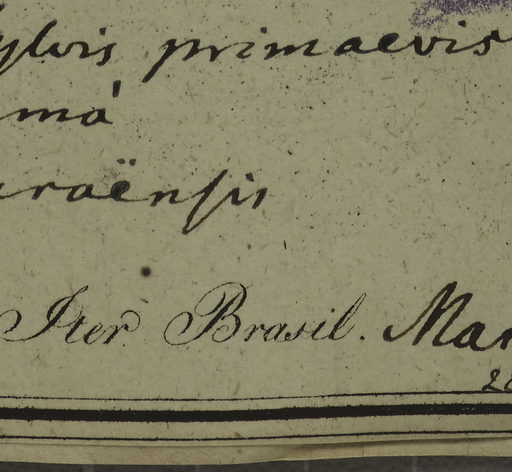 sylvis primaevis
má
araënsis
Iter Brasil. Mar
28